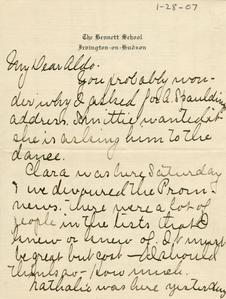 1-28-07
The Bennett School
Irvington-on-Hudson
My Dear Aldo.
You probably won-
der why I asked for A. Spaulding
address. Smittie wanted it
she is asking him to the
dance.
Clara was here Saturday
& we devoured the Prom
news. There were a lot of
people in the lists that I
knew or knew of. It must
be great but cost — I should
think so — how much.
Nathalie was here yesterday